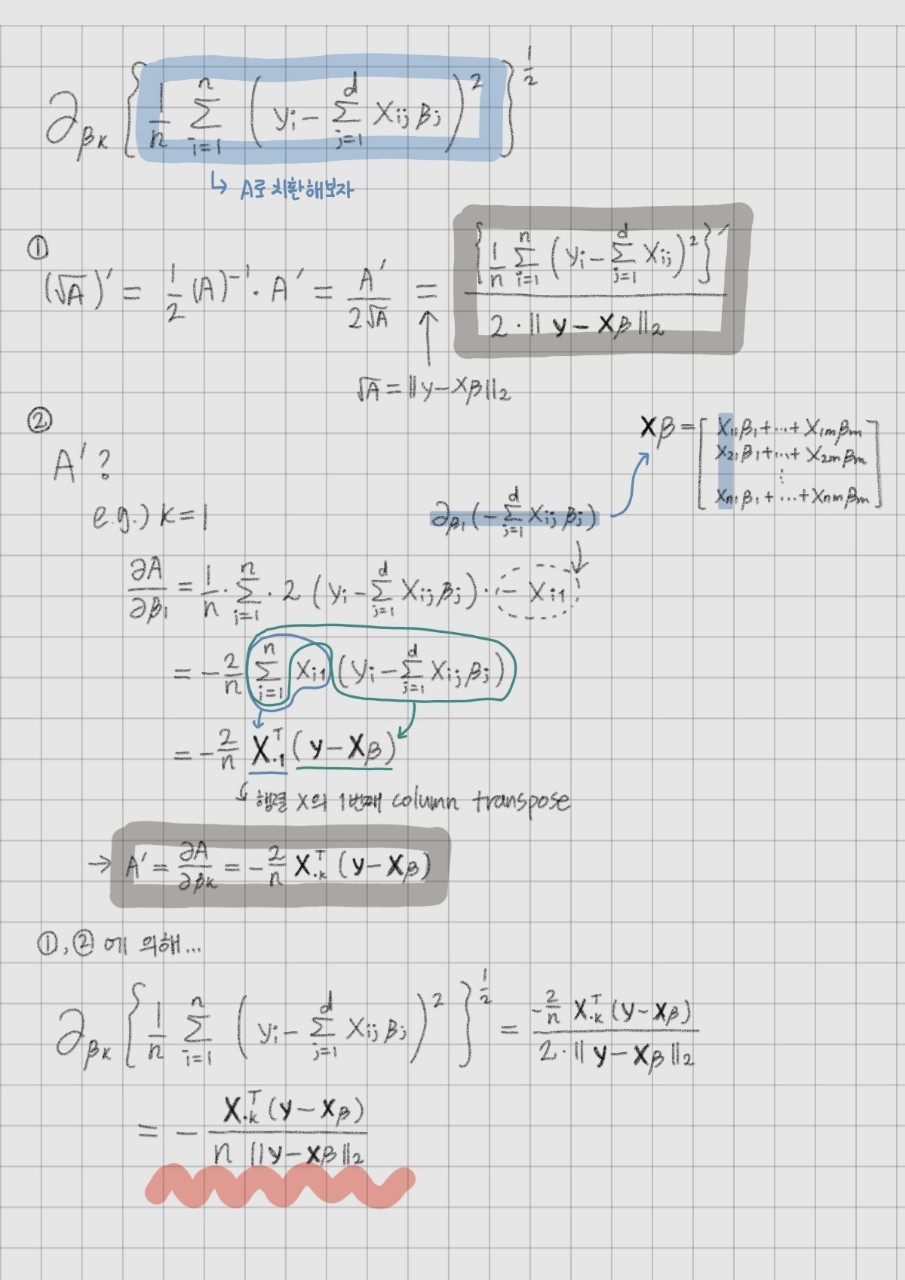 ∂_{βk} { 1/n Σ_{i=1}^{n} ( yi − Σ_{j=1}^{d} Xij βj )^2 }^{1/2}
↳ A로 치환해보자
①
(√A)′ = 1/2 (A)^{-1} · A′ = A′ / 2√A = { 1/n Σ_{i=1}^{n} ( yi − Σ_{j=1}^{d} Xij )^2 }′ / 2 · ‖ y − Xβ ‖2
√A = ‖ y − Xβ ‖2
②
A′ ?
Xβ = [ X11β1 + ... + X1mβm
X21β1 + ... + X2mβm
⋮
Xn1β1 + ... + Xnmβm ]
e.g.) k = 1
∂_{β1} ( − Σ_{j=1}^{d} Xij βj )
∂A/∂β1 = 1/n · Σ_{i=1}^{n} · 2 ( yi − Σ_{j=1}^{d} Xij βj ) · − Xi1
= − 2/n Σ_{i=1}^{n} Xi1 ( yi − Σ_{j=1}^{d} Xij βj )
= − 2/n X_{·1}^T ( y − Xβ )
↳ 행렬 X의 1번째 column transpose
→ A′ = ∂A/∂βk = − 2/n X_{·k}^T ( y − Xβ )
①, ② 에 의해...
∂_{βk} { 1/n Σ_{i=1}^{n} ( yi − Σ_{j=1}^{d} Xij βj )^2 }^{1/2} = − 2/n X_{·k}^T ( y − Xβ ) / 2 · ‖ y − Xβ ‖2
= − X_{·k}^T ( y − Xβ ) / n ‖ y − Xβ ‖2